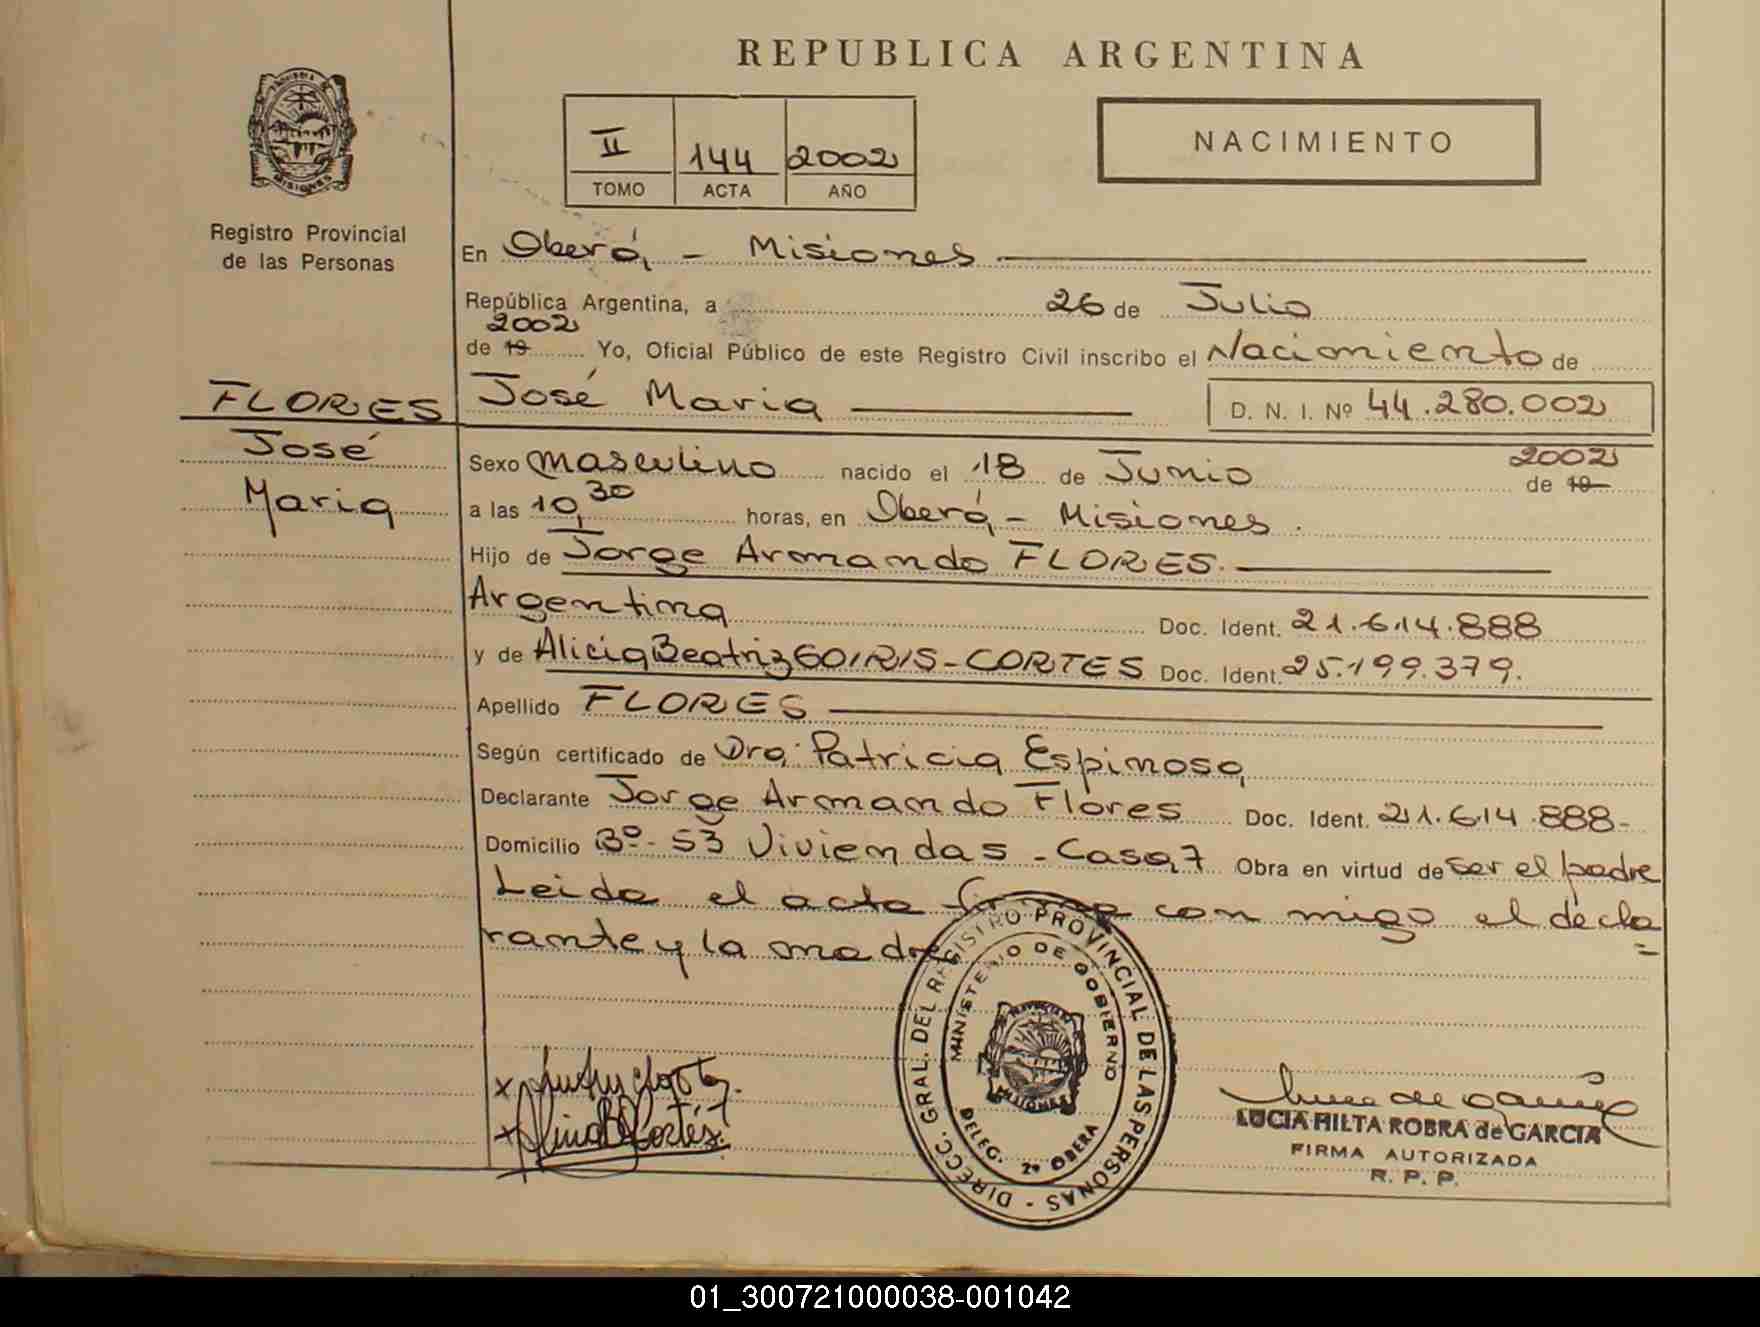 REPUBLICA ARGENTINA
MISIONES
Registro Provincial
de las Personas
II 144 2002
TOMO ACTA AÑO
NACIMIENTO
En Oberá, - Misiones
República Argentina, a 26 de Julio
2002
de 19 Yo, Oficial Público de este Registro Civil inscribo el Nacimiento de
FLORES José Maria D. N. I. Nº 44.280.002
José
Maria
Sexo masculino nacido el 18 de Junio 2002 de 19
a las 10,30 horas, en Oberá, - Misiones.
Hijo de Jorge Armando FLORES.
Argentina Doc. Ident. 21.614.888
y de Alicia Beatriz GOIRIS-CORTES Doc. Ident. 25.199.379.
Apellido FLORES
Según certificado de Dra. Patricia Espinosa,
Declarante Jorge Armando Flores Doc. Ident. 21.614.888-
Domicilio Bº-53 Viviendas - Casa,7 Obra en virtud de ser el padre
Leida el acta firma con migo el decla
=
rante y la madre
DIRECC. GRAL. DEL REGISTRO PROVINCIAL DE LAS PERSONAS -
MINISTERIO DE GOBIERNO
MISIONES
DELEG. 2º OBERA
LUCIA HILTA ROBRA de GARCIA
FIRMA AUTORIZADA
R. P. P.
01_300721000038-001042